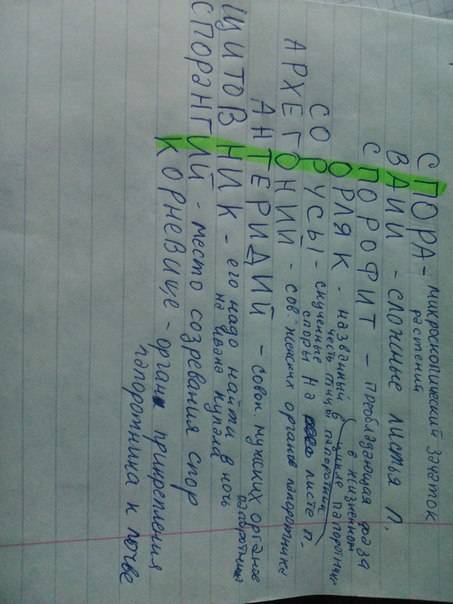 СПОРА - микроскопический зачаток
растения
ВАИИ - сложные листья п.
СПОРОФИТ - преобладающая фаза
в жизненном
цикле папоротник
ОРЛЯК - названный в
честь птицы папоротник
СОРУСЫ - скученные
споры на листе п.
АРХЕГОНИИ - сов. женских органов папоротника
АНТЕРИДИЙ - совок. мужских органов
папоротника
ЩИТОВНИК - его надо найти в ночь
на Ивана Купала
СПОРАНГИЙ - место созревания спор
КОРНЕВИЩЕ - орган прикрепления
папоротника к почве